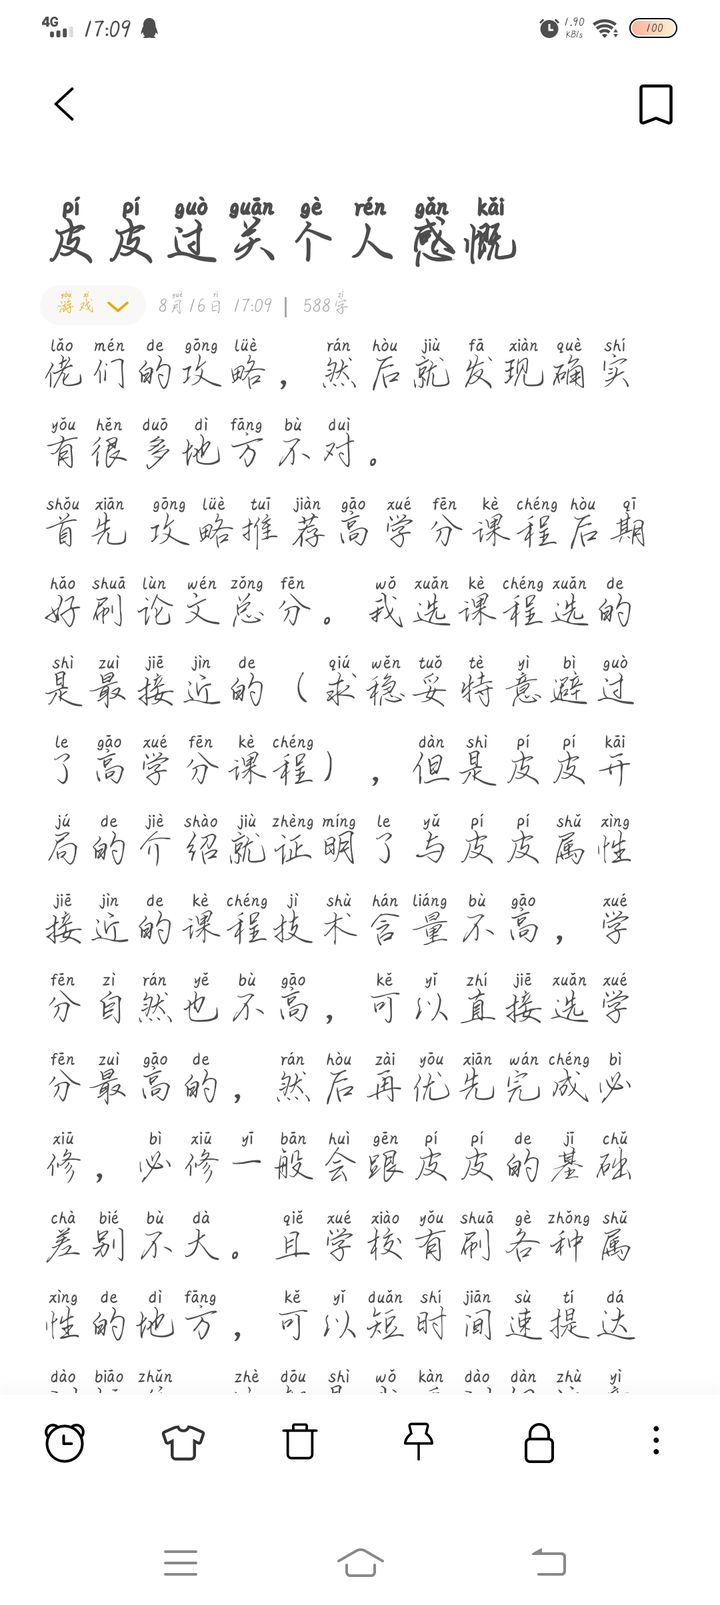 4G 17:09 1.90 KB/s 100
pí pí guò guān gè rén gǎn kǎi
皮皮过关个人感慨
yóu xì yuè rì zì
游戏 8月16日 17:09 | 588字
lǎo mén de gōng lüè rán hòu jiù fā xiàn què shí
佬们的攻略，然后就发现确实
yǒu hěn duō dì fāng bù duì
有很多地方不对。
shǒu xiān gōng lüè tuī jiàn gāo xué fēn kè chéng hòu qī
首先 攻略推荐高学分课程后期
hǎo shuā lùn wén zǒng fēn wǒ xuǎn kè chéng xuǎn de
好刷论文总分。我选课程选的
shì zuì jiē jìn de qiú wěn tuǒ tè yì bì guò
是最接近的（求稳妥特意避过
le gāo xué fēn kè chéng dàn shì pí pí kāi
了高学分课程），但是皮皮开
jú de jiè shào jiù zhèng míng le yǔ pí pí shǔ xìng
局的介绍就证明了与皮皮属性
jiē jìn de kè chéng jì shù hán liáng bù gāo xué
接近的课程技术含量不高，学
fēn zì rán yě bù gāo kě yǐ zhí jiē xuǎn xué
分自然也不高，可以直接选学
fēn zuì gāo de rán hòu zài yōu xiān wán chéng bì
分最高的，然后再优先完成必
xiū bì xiū yī bān huì gēn pí pí de jī chǔ
修，必修一般会跟皮皮的基础
chà bié bù dà qiě xué xiào yǒu shuā gè zhǒng shǔ
差别不大。且学校有刷各种属
xìng de dì fāng kě yǐ duǎn shí jiān sù tí dá
性的地方，可以短时间速提达
dào biāo zhǔn zhè dōu shì wǒ kàn dào dàn zhù yì